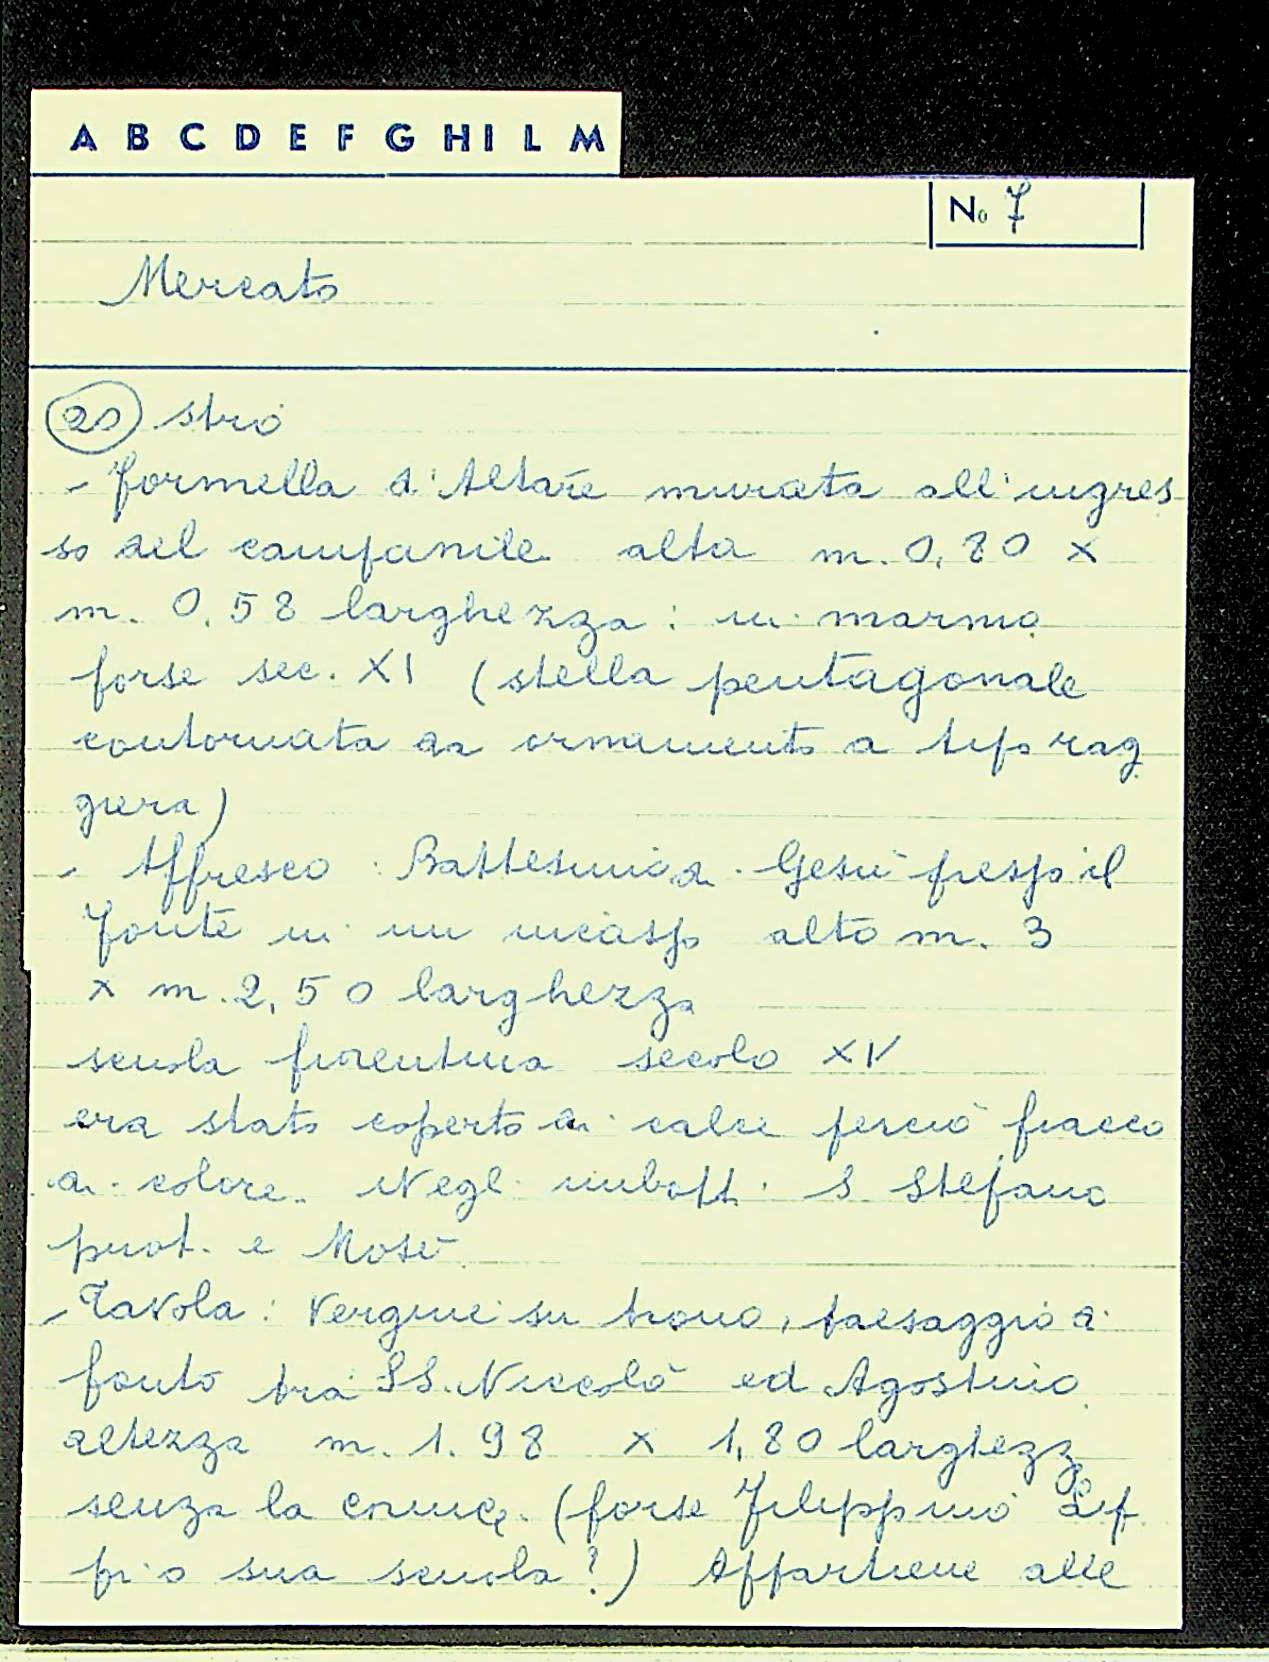 A B C D E F G H I L M
No 7
Mercato
20 stro
- formella d'Altare murata all'ingres
so del campanile alta m. 0,80 x
m. 0,58 larghezza: in marmo
forse sec. XI (stella pentagonale
contornata da ornamento a tipo rag
giera)
- Affresco: Battesimo di Gesù presso il
Fonte in un incasso alto m. 3
x m. 2,50 larghezza
scuola fiorentina secolo XV
era stato coperto di calce perciò fiacco
di colore. Negl imbott. S Stefano
prot. e Mosè
- Tavola: Vergine su trono, paesaggio di
fonto tra SS. Niccolò ed Agostino
altezza m. 1.98 x 1,80 larghezz
senza la cornice. (forse Filippino Lip
pi o sua scuola?) Appartiene alle